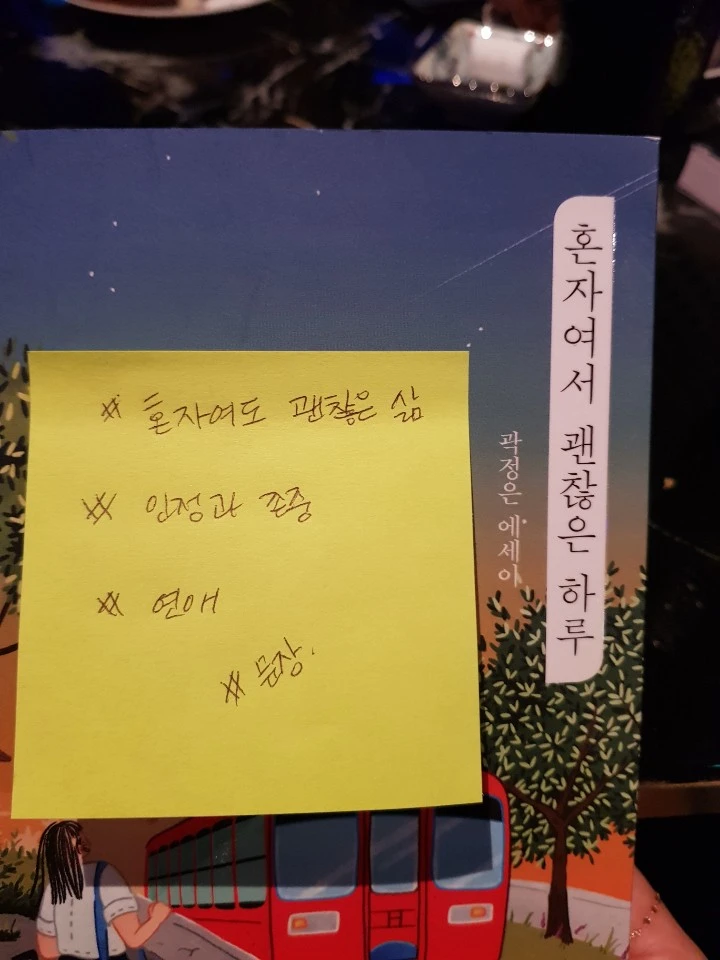 혼자여서 괜찮은 하루
곽정은 에세이
# 혼자여도 괜찮은 삶
# 인정과 존중
# 연애
# 문장.